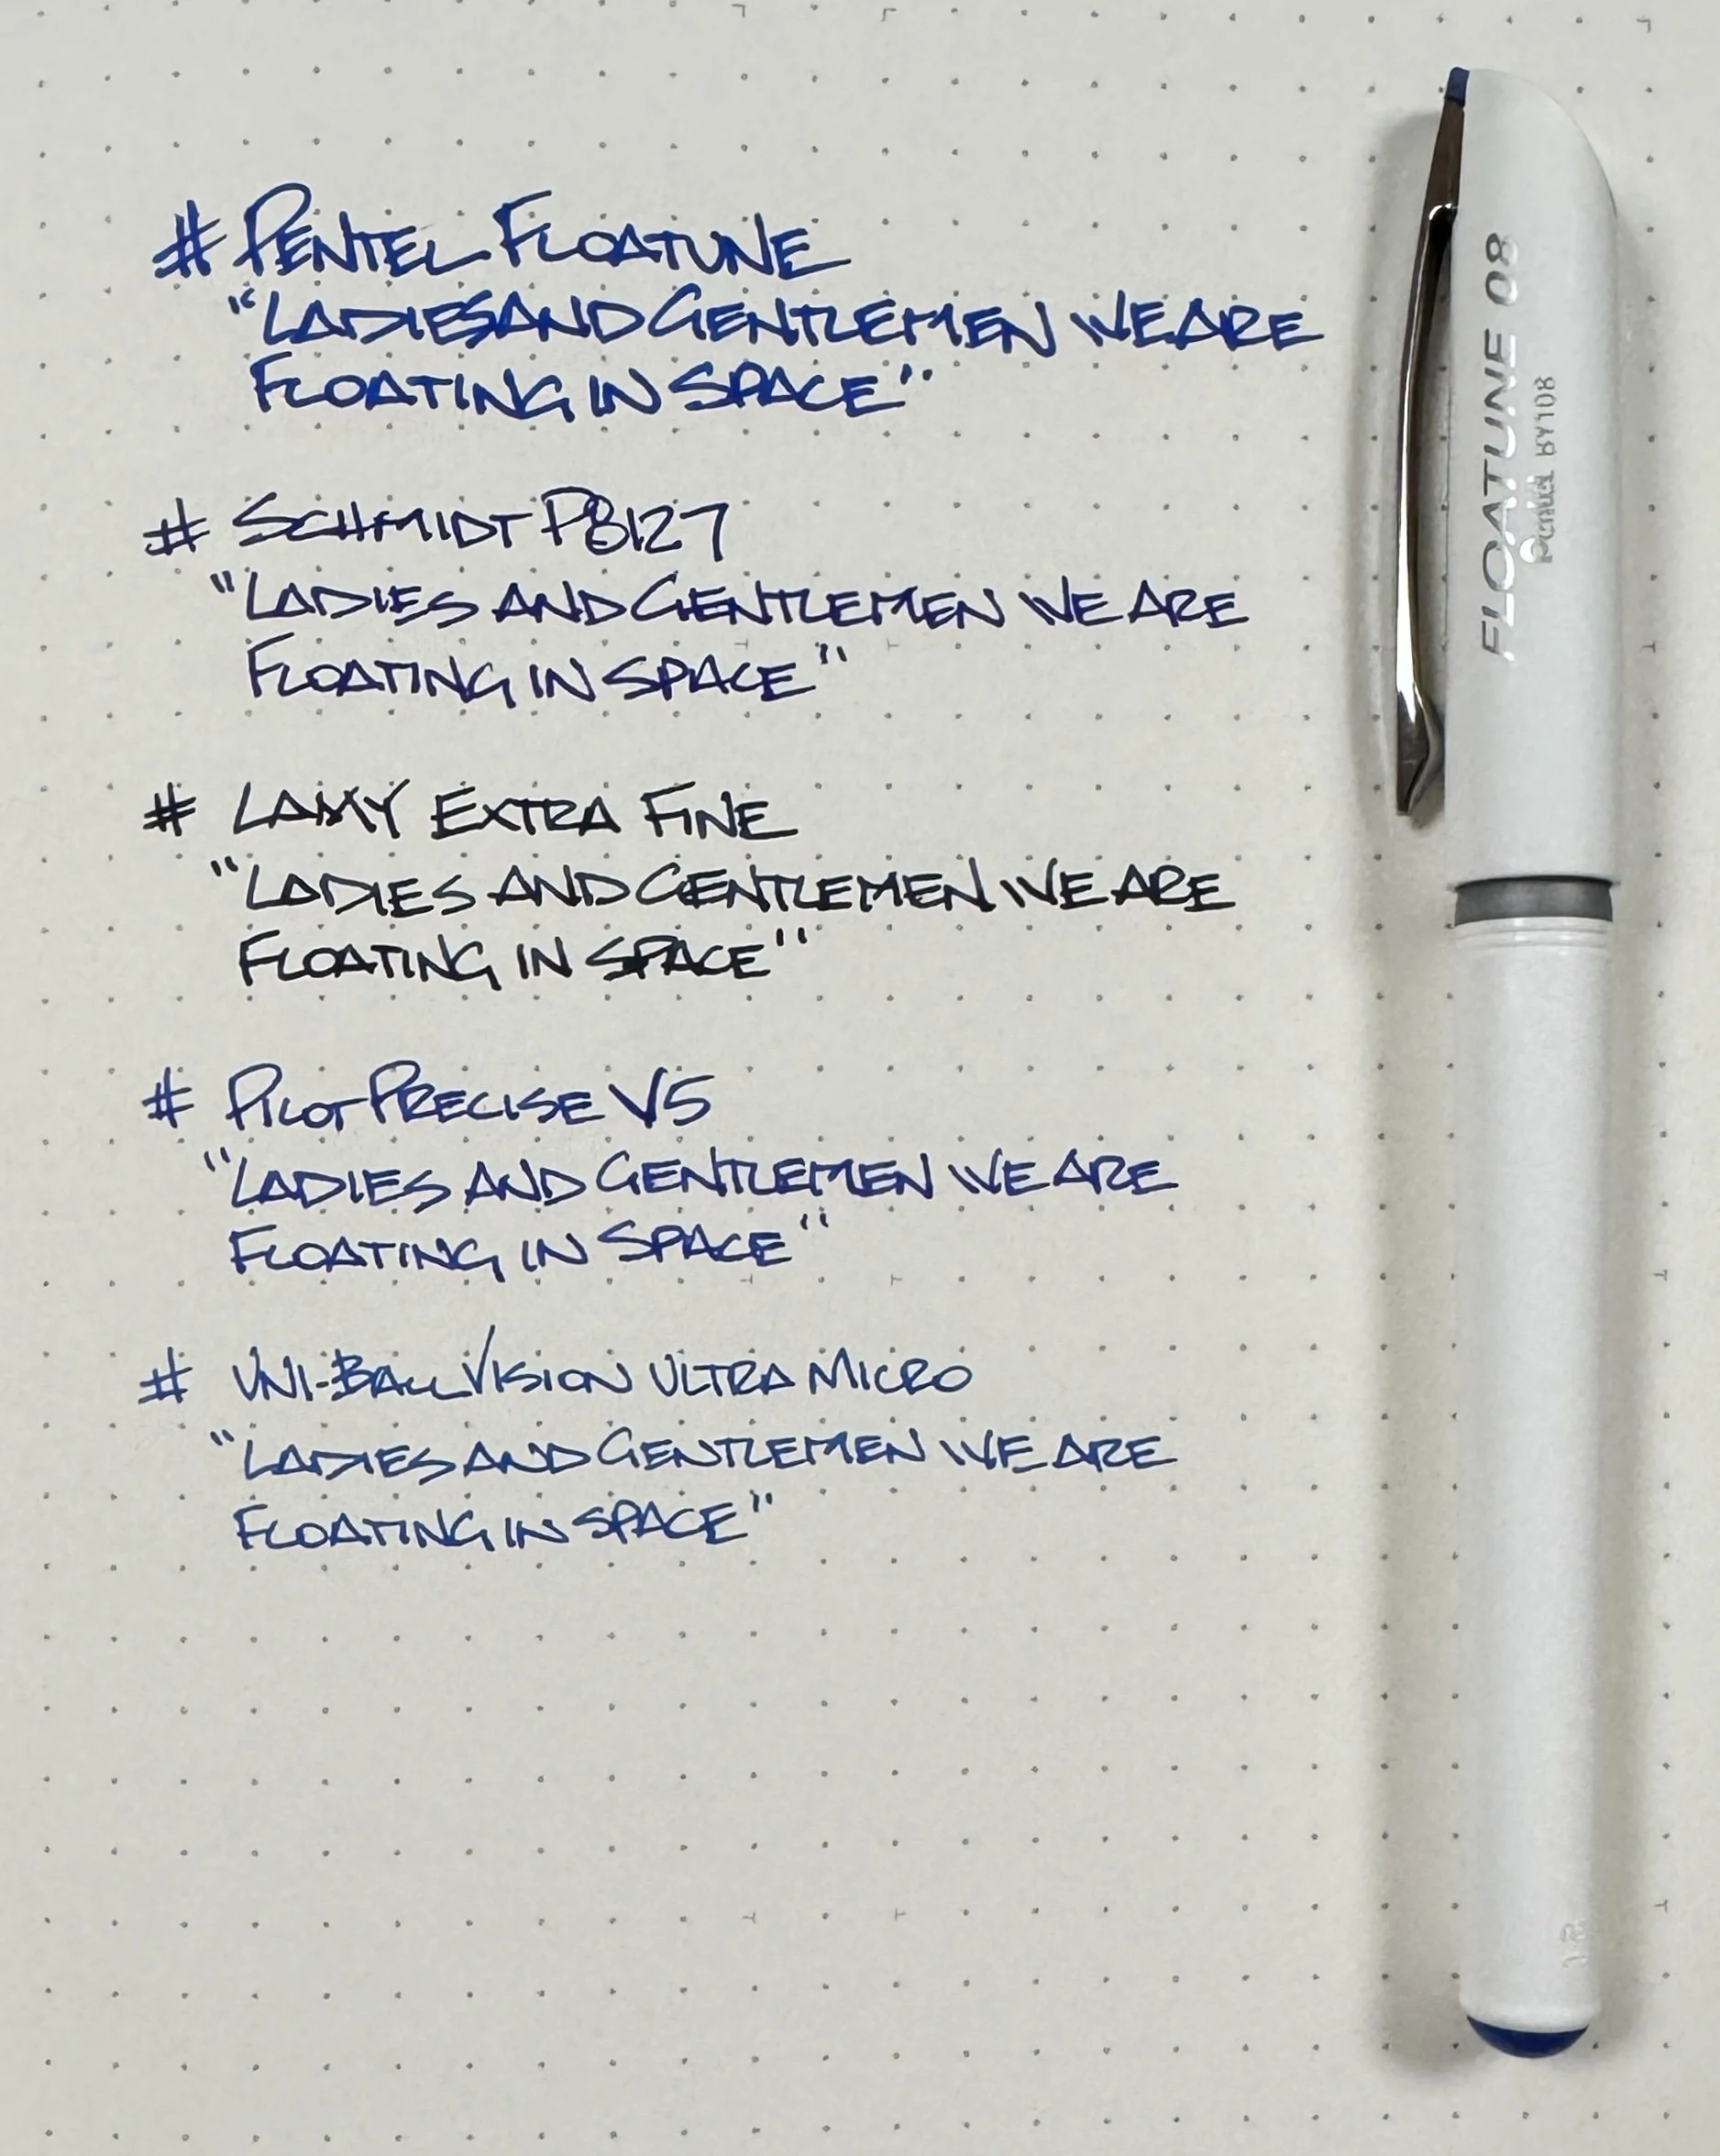 # PENTEL FLOATUNE
"LADIES AND GENTLEMEN WE ARE
FLOATING IN SPACE"
# SCHMIDT P8127
"LADIES AND GENTLEMEN WE ARE
FLOATING IN SPACE"
# LAMY EXTRA FINE
"LADIES AND GENTLEMEN WE ARE
FLOATING IN SPACE"
# PILOT PRECISE V5
"LADIES AND GENTLEMEN WE ARE
FLOATING IN SPACE"
# UNI-BALL VISION ULTRA MICRO
"LADIES AND GENTLEMEN WE ARE
FLOATING IN SPACE"
FLOATUNE 08
Pentel RY108